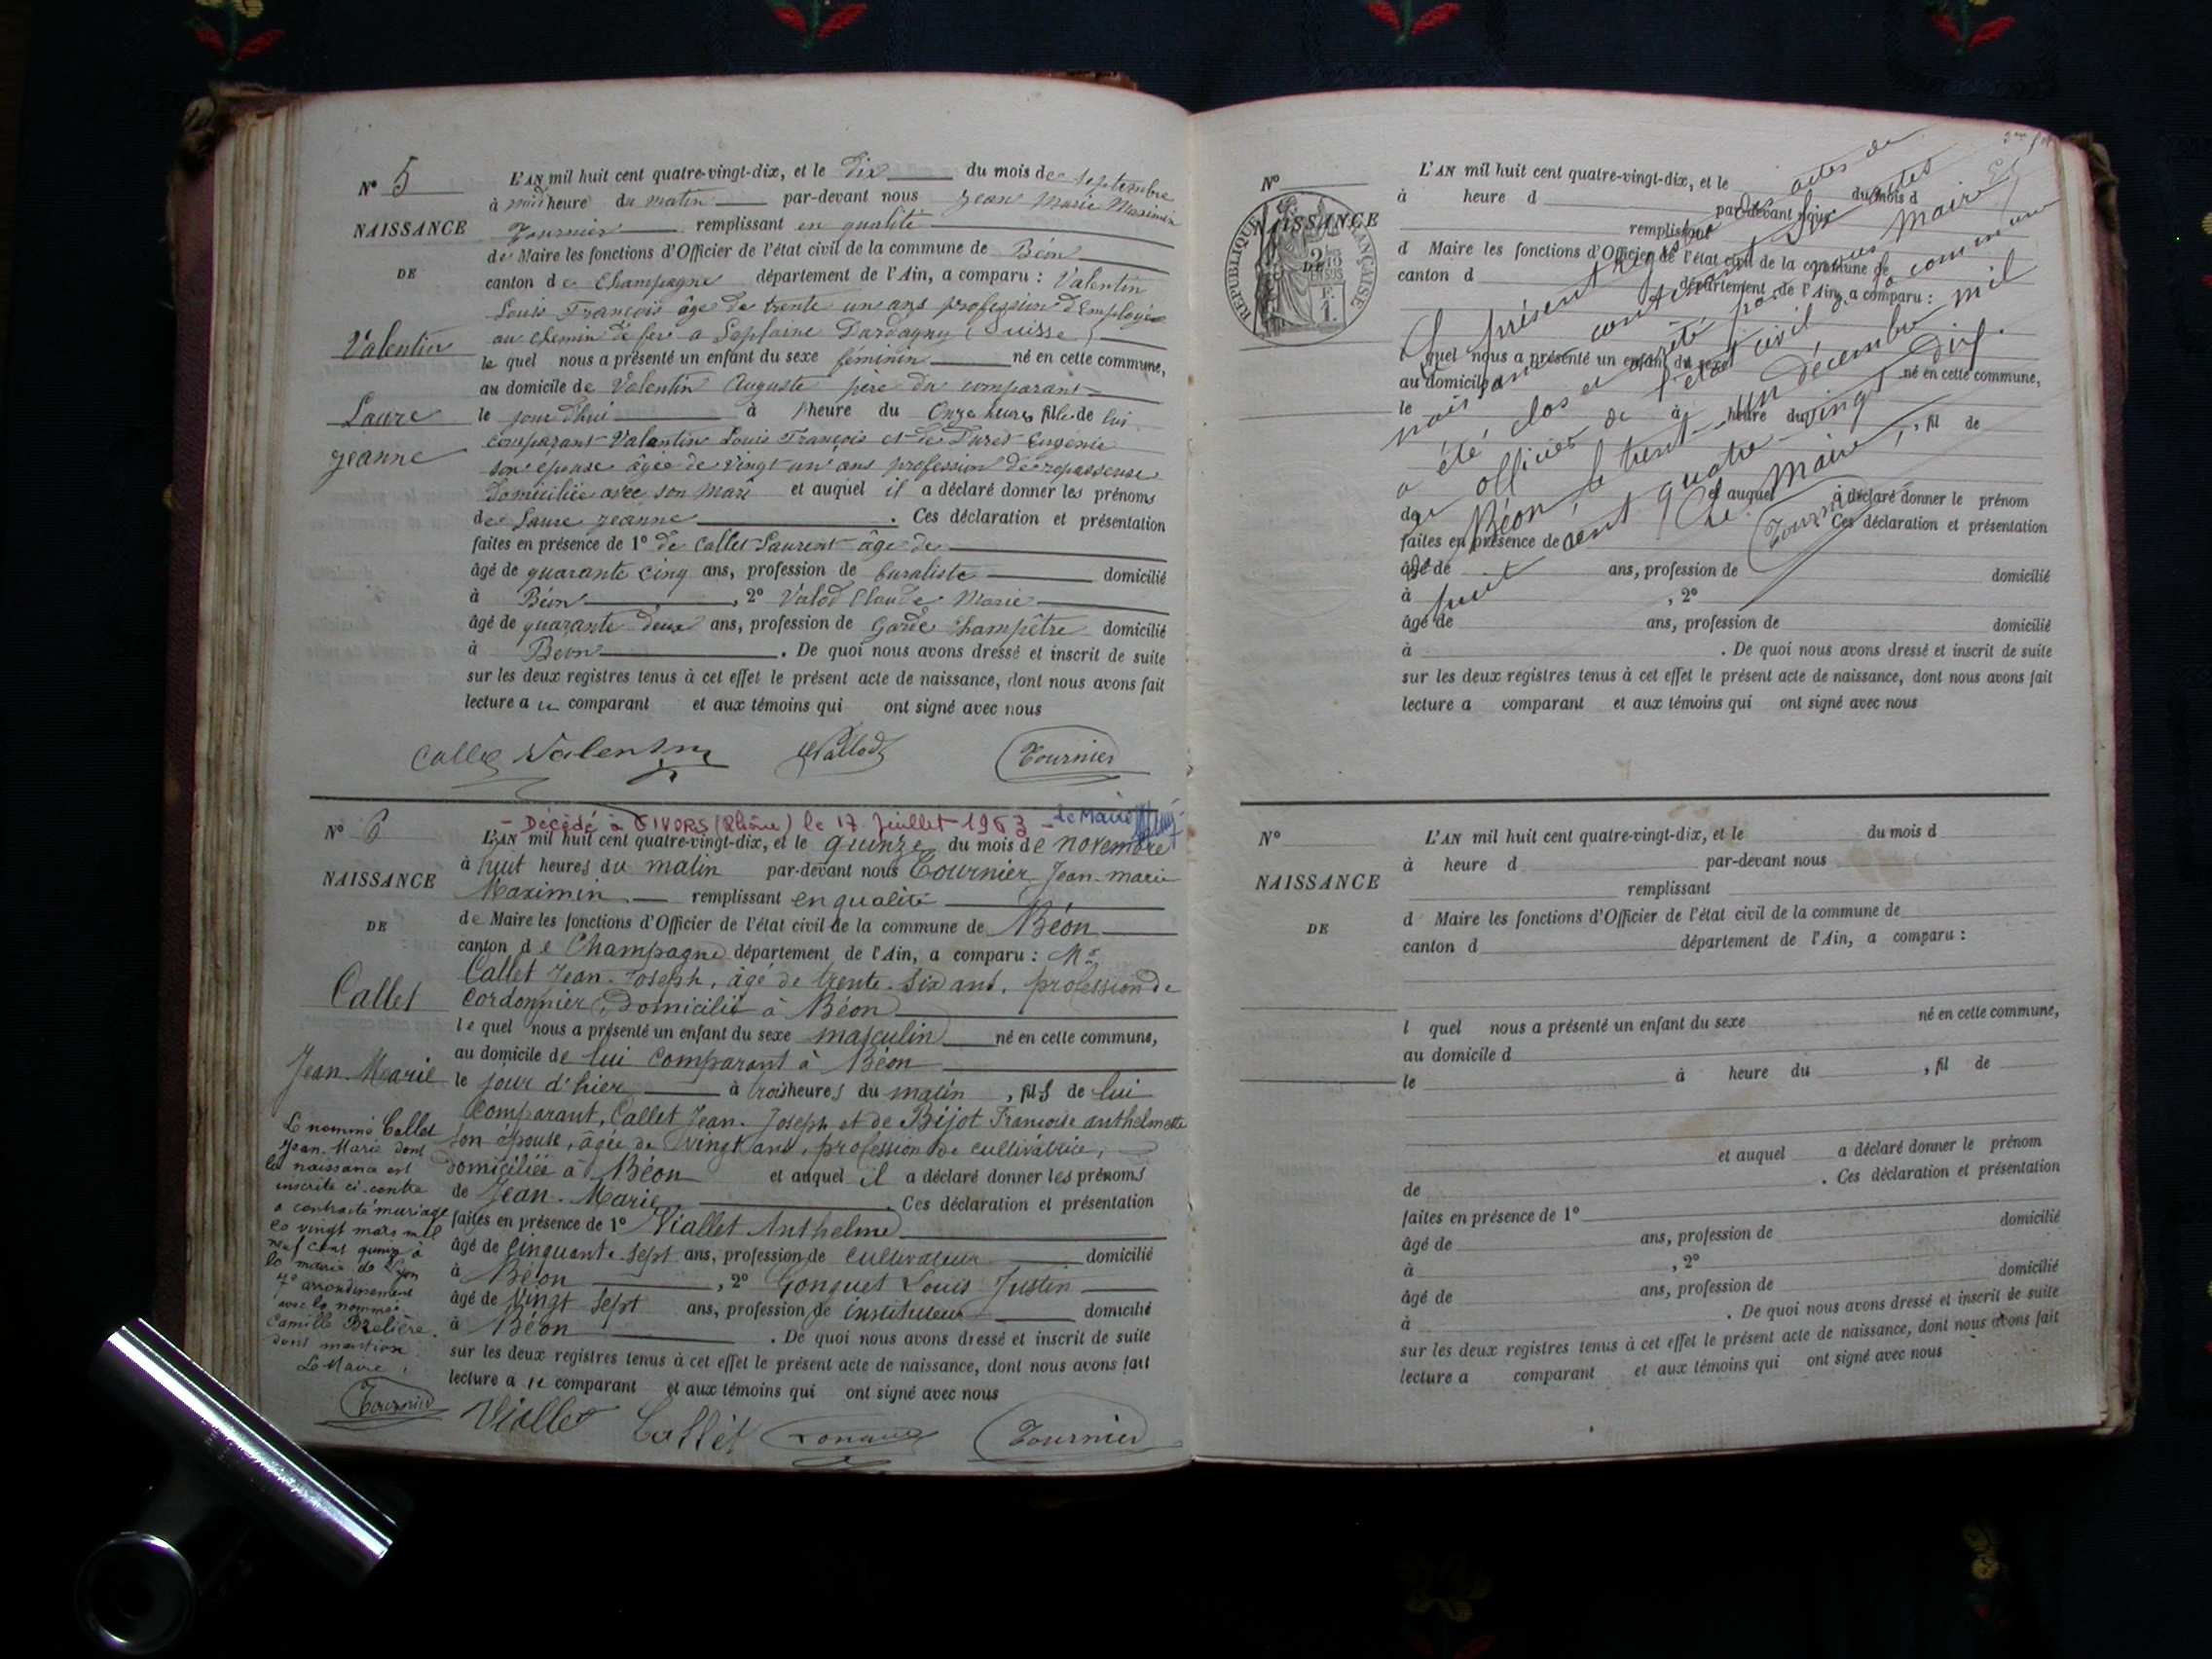 N° 5
NAISSANCE
DE
Valentin
Laure
jeanne
L'AN mil huit cent quatre-vingt-dix, et le Dix du mois de Septembre
à midi heure du matin par-devant nous Jean Marie Maximin
Tournier remplissant en qualité
de Maire les fonctions d'Officier de l'état civil de la commune de Béon
canton de Champagne département de l'Ain, a comparu : Valentin
Louis François âgé de trente un ans profession d'Employé
au chemin de fer a Dardagny (Suisse)
le quel nous a présenté un enfant du sexe féminin né en cette commune,
au domicile de Valentin Auguste père du comparant
le jour d'hui à heure du Onze heures fille de lui
comparant Valentin Louis François et de Eugenie
son épouse âgée de vingt un ans profession de repasseuse
Domiciliée avec son Mari et auquel il a déclaré donner les prénoms
de Laure jeanne . Ces déclaration et présentation
faites en présence de 1° de Callet Laurent âge de
âgé de quarante cinq ans, profession de buraliste domicilié
à Béon , 2° Valod Claude Marie
âgé de quarante deux ans, profession de Garde Champêtre domicilié
à Béon . De quoi nous avons dressé et inscrit de suite
sur les deux registres tenus à cet effet le présent acte de naissance, dont nous avons fait
lecture a u comparant et aux témoins qui ont signé avec nous
Callet Valentin Vallod Tournier
- Décédé à GIVORS (Rhône) le 17 Juillet 1963 - Le Maire
N° 6
NAISSANCE
DE
Callet
Jean-Marie
L'AN mil huit cent quatre-vingt-dix, et le quinze du mois de novembre
à huit heures du matin par-devant nous Tournier Jean-marie
Maximin remplissant en qualité
de Maire les fonctions d'Officier de l'état civil de la commune de Béon
canton de Champagne département de l'Ain, a comparu : Mr
Callet Jean-Joseph, âgé de trente-six ans, profession de
cordonnier, domicilié à Béon
le quel nous a présenté un enfant du sexe masculin né en cette commune,
au domicile de lui comparant à Béon
le jour d'hier à trois heures du matin , fils de lui
comparant, Callet Jean-Joseph et de Bijot Françoise anthelmette
son épouse, âgée de vingt ans, profession de cultivatrice,
domiciliée à Béon et auquel il a déclaré donner les prénoms
de Jean-Marie . Ces déclaration et présentation
faites en présence de 1° Viallet Anthelme
âgé de cinquante-sept ans, profession de cultivateur domicilié
à Béon , 2° Gonguet Louis Justin
âgé de vingt sept ans, profession de instituteur domicilié
à Béon . De quoi nous avons dressé et inscrit de suite
sur les deux registres tenus à cet effet le présent acte de naissance, dont nous avons fait
lecture a u comparant et aux témoins qui ont signé avec nous
Viallet Callet Tournier
Le nommé Callet
Jean-Marie dont
la naissance est
inscrite ci-contre
a contracté mariage
le vingt mars mil
neuf cent quinze à
la mairie de Lyon
7e arrondissement
avec la nommée
Camille Brelière.
dont mention.
Le Maire,
Tournier
N°
NAISSANCE
DE
RÉPUBLIQUE FRANÇAISE
L'AN mil huit cent quatre-vingt-dix, et le du mois d
à heure d par-devant nous
remplissant
d Maire les fonctions d'Officier de l'état civil de la commune de
canton d département de l'Ain, a comparu :
l quel nous a présenté un enfant du sexe né en cette commune,
au domicile d
le à heure du , fil de
et auquel a déclaré donner le prénom
de Ces déclaration et présentation
faites en présence de
âgé de ans, profession de domicilié
à , 2°
âgé de ans, profession de domicilié
à . De quoi nous avons dressé et inscrit de suite
sur les deux registres tenus à cet effet le présent acte de naissance, dont nous avons fait
lecture a comparant et aux témoins qui ont signé avec nous
Le présent registre des actes de
naissance contenant six actes
a été clos et arrêté par nous Maire et
officier de l'état civil de la commune
de Béon, le trente-un décembre mil
huit cent quatre-vingt dix.
Le Maire,
Tournier
N°
NAISSANCE
DE
L'AN mil huit cent quatre-vingt-dix, et le du mois d
à heure d par-devant nous
remplissant
d Maire les fonctions d'Officier de l'état civil de la commune de
canton d département de l'Ain, a comparu :
l quel nous a présenté un enfant du sexe né en cette commune,
au domicile d
le à heure du , fil de
et auquel a déclaré donner le prénom
de . Ces déclaration et présentation
faites en présence de 1°
âgé de ans, profession de domicilié
à , 2°
âgé de ans, profession de domicilié
à . De quoi nous avons dressé et inscrit de suite
sur les deux registres tenus à cet effet le présent acte de naissance, dont nous avons fait
lecture a comparant et aux témoins qui ont signé avec nous